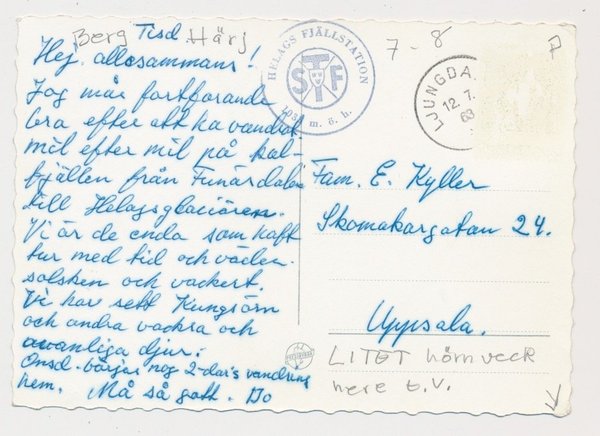 Berg Tisd. Härj
Hej allesammans!
Jag mår fortfarande
bra efter att ha vandrat
mil efter mil på kal-
fjällen från Funäsdalen
till Helagsglaciären.
Vi är de enda som haft
tur med tid och väder.
solsken och vackert.
Vi har sett Kungsörn
och andra vackra och
ovanliga djur.
Onsd. börjar nog 2-dar's vandring
hem. Må så gott.
HELAGS FJÄLLSTATION
STF
m. ö. h.
7-8
7
LJUNGDA
12.7.
Fam. E. Kyller
Skomakargatan 24.
Uppsala.
LITET hörnveck
nere t.v.